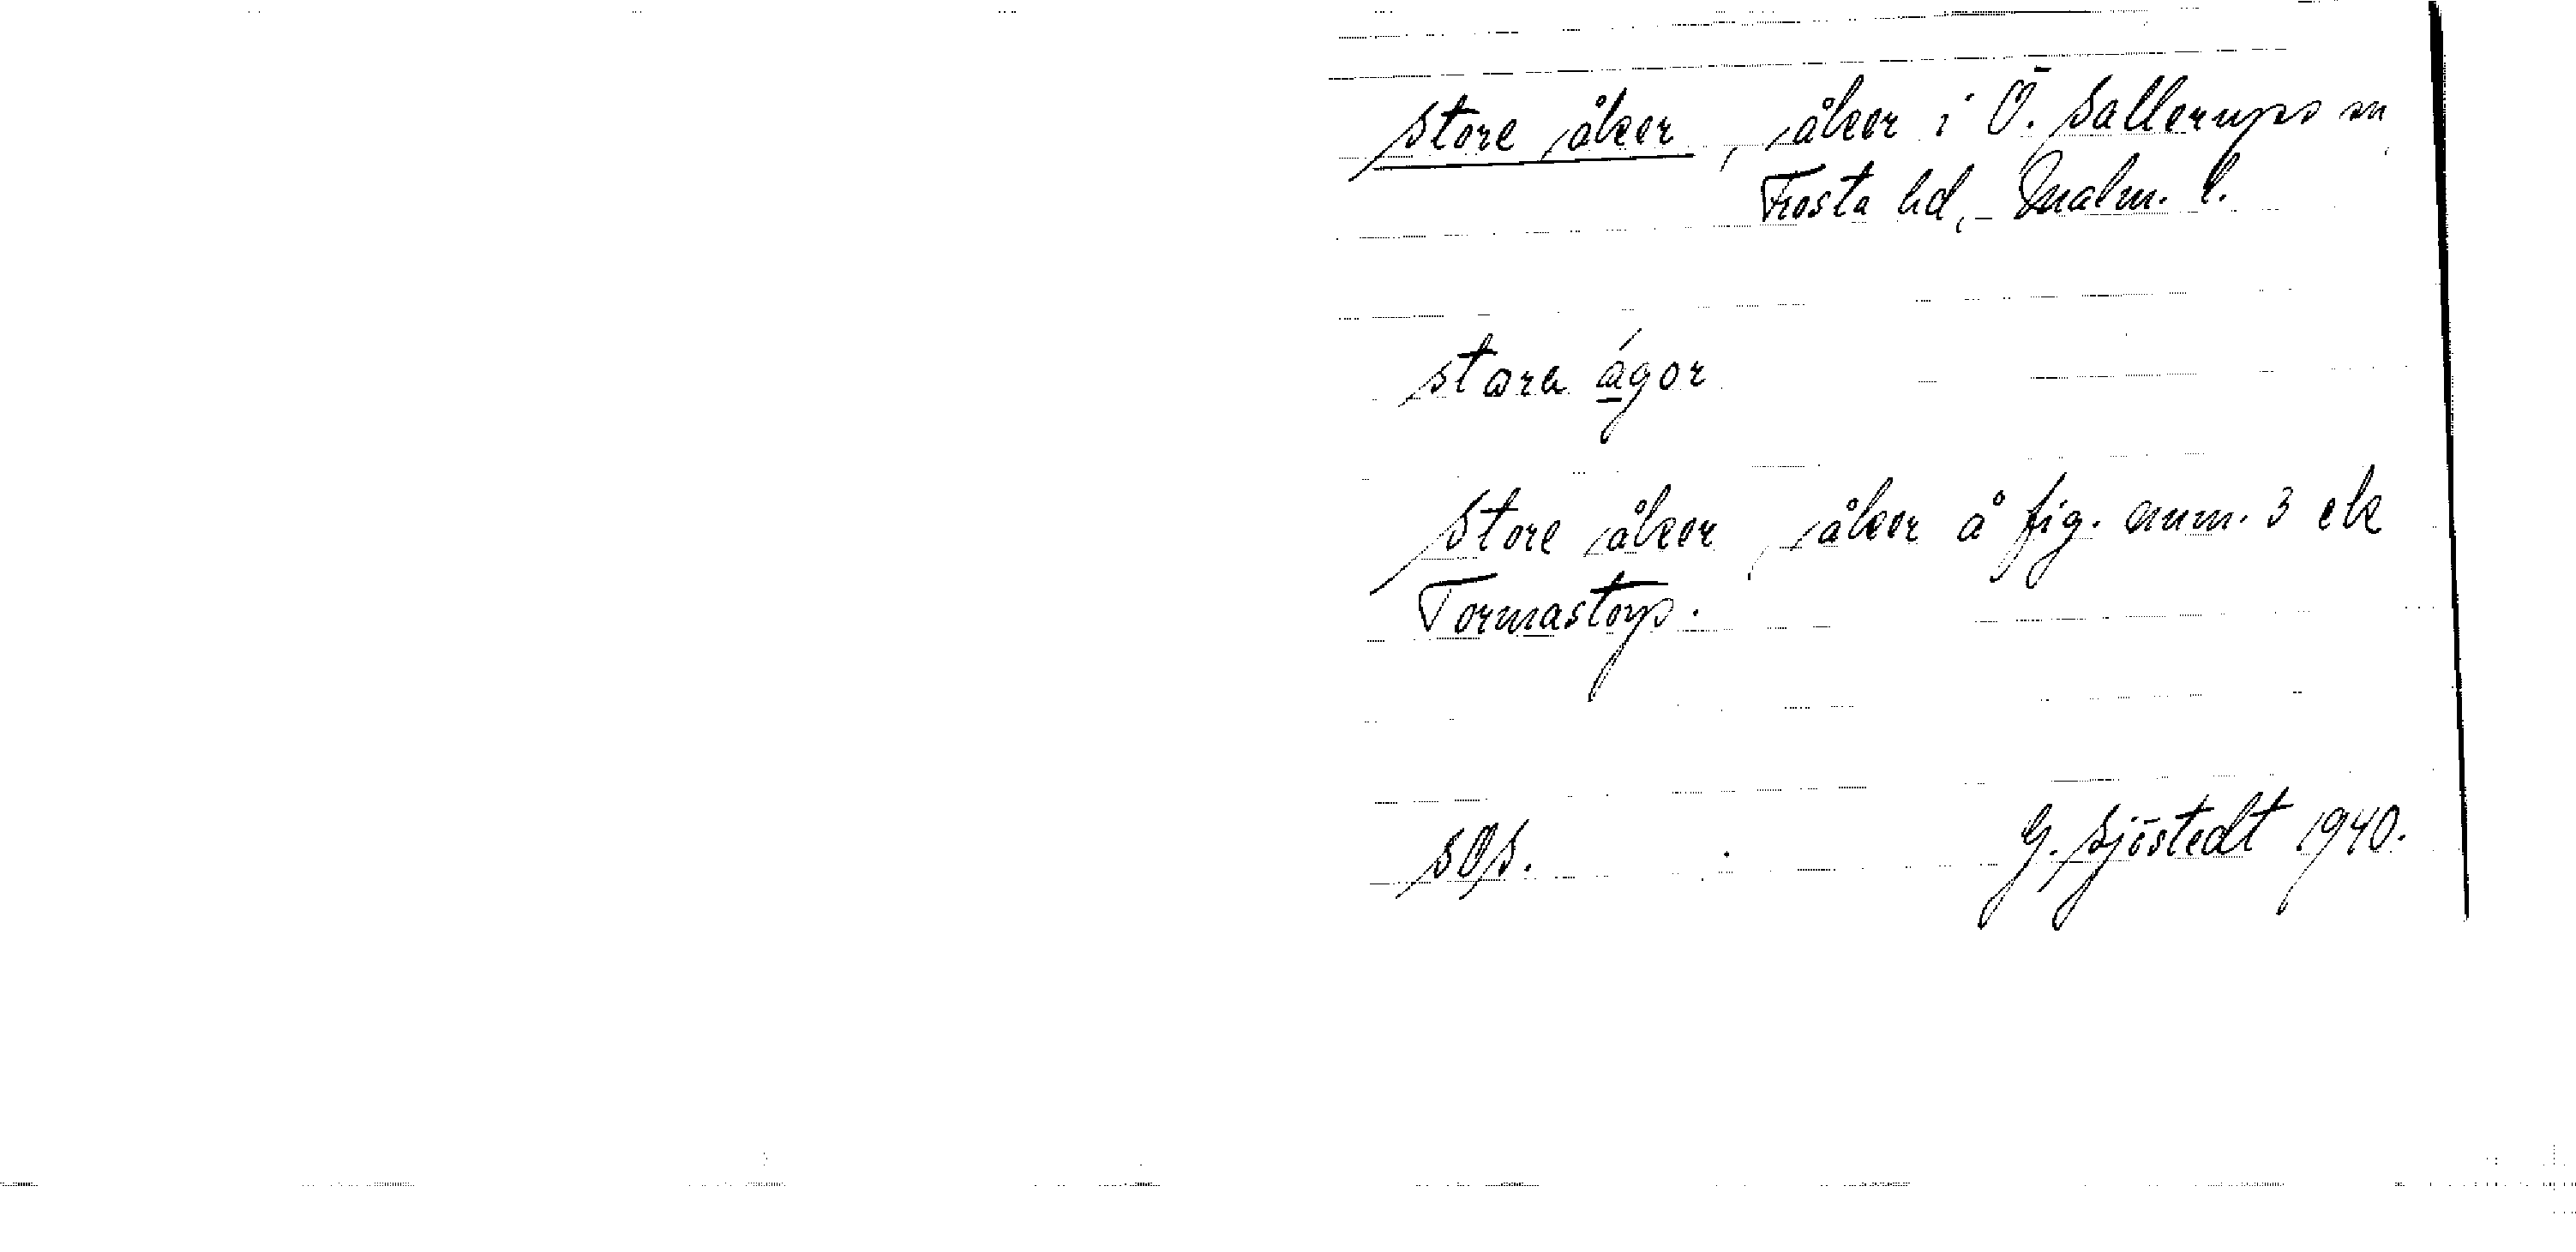 Store åker, åker i Ö. Sallerups sn,
Frosta hd, Malm. l.
stora ágor
Store åker, åker å fig. num. 3 ek
Tormastorp.
SOS. G. Sjöstedt 1940.